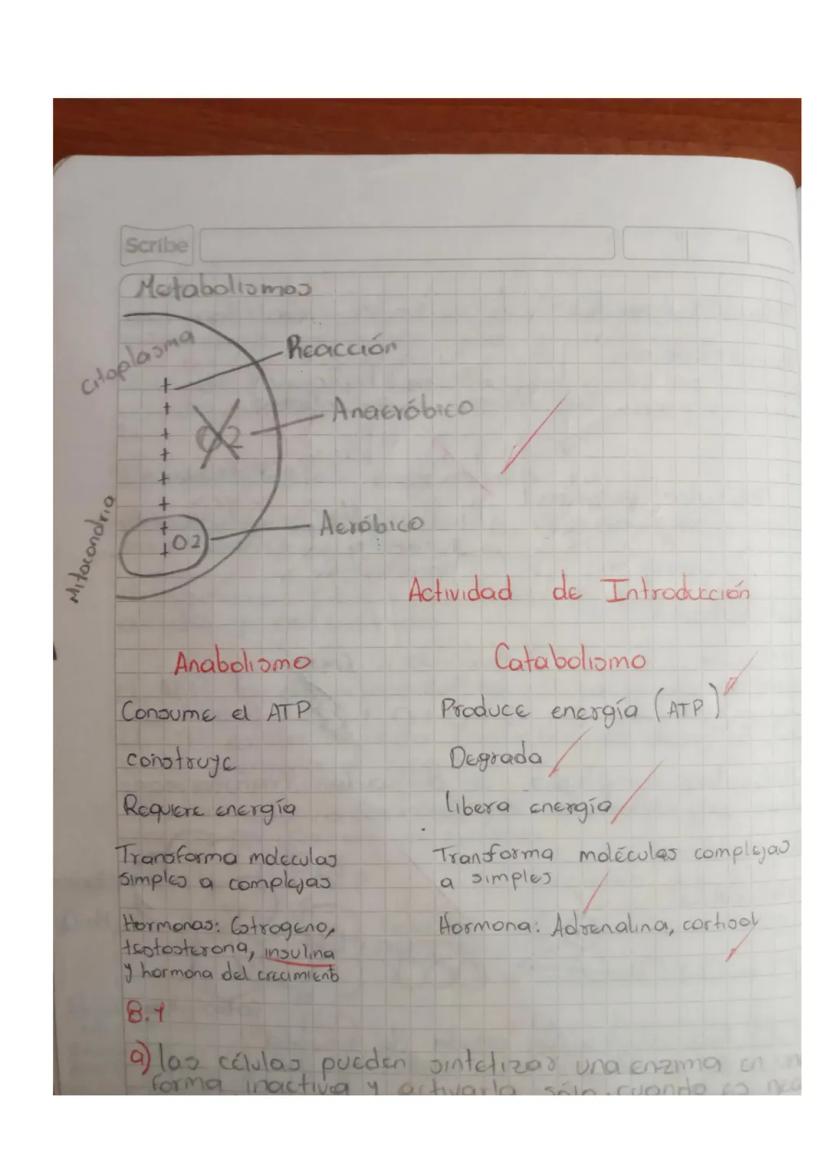 Scribe
Metabolismos
Citoplasma
Reacción
O2
Anaeróbico
Mitocondria
O2
Aeróbico
Actividad de Introducción
Anabolismo
Catabolismo
Consume el ATP
Produce energía (ATP)
construye
Degrada
Requiere energía
libera energía
Transforma moleculas
simples a complejas
Transforma moléculas complejas
a simples
Hormonas: Estrogeno,
testosterona, insulina
y hormona del crecimiento
Hormona: Adrenalina, cortisol
8.1
a) las células pueden sintetizar una enzima en
forma inactiva y activarla sólo cuando es